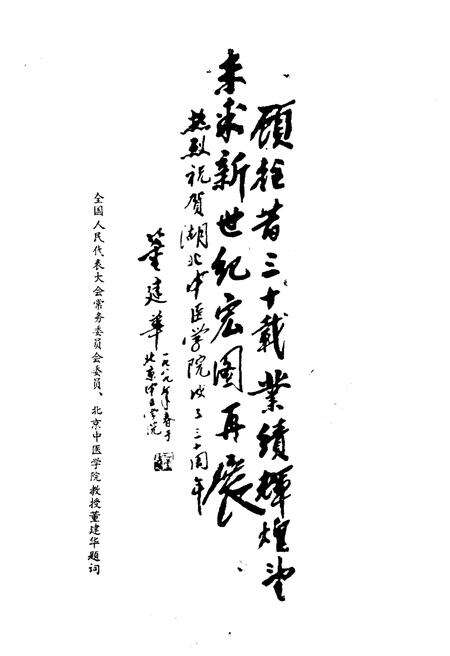 顾往昔三十载业绩辉煌望
未来新世纪宏图再展
热烈祝贺湖北中医学院成立三十周年
董建华
一九八九年春于
北京中医学院
全国人民代表大会常务委员会委员、北京中医学院教授董建华题词